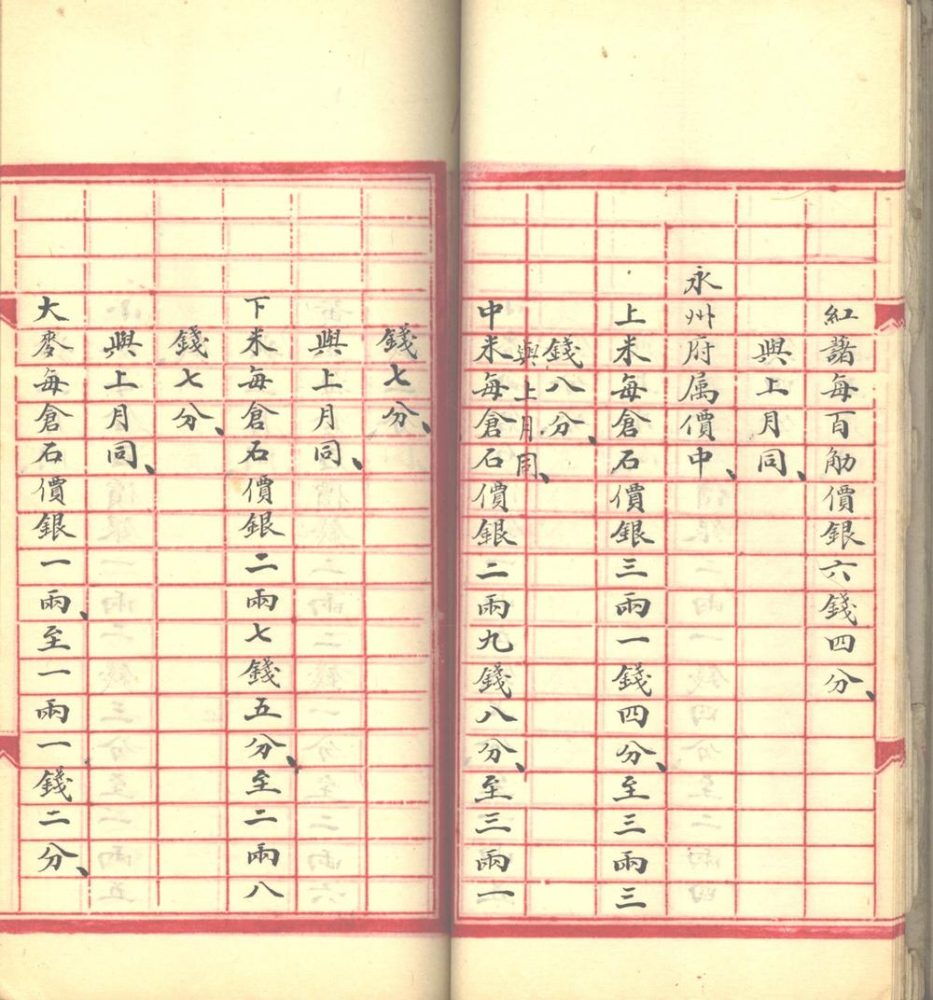 紅藷每百觔價銀六錢四分、
與上月同、
永州府属價中、
上米每倉石價銀三兩一錢四分、至三兩三
錢八分、
與上月同、
中米每倉石價銀二兩九錢八分、至三兩一
錢七分、
與上月同、
下米每倉石價銀二兩七錢五分、至二兩八
錢七分、
與上月同、
大麥每倉石價銀一兩、至一兩一錢二分、